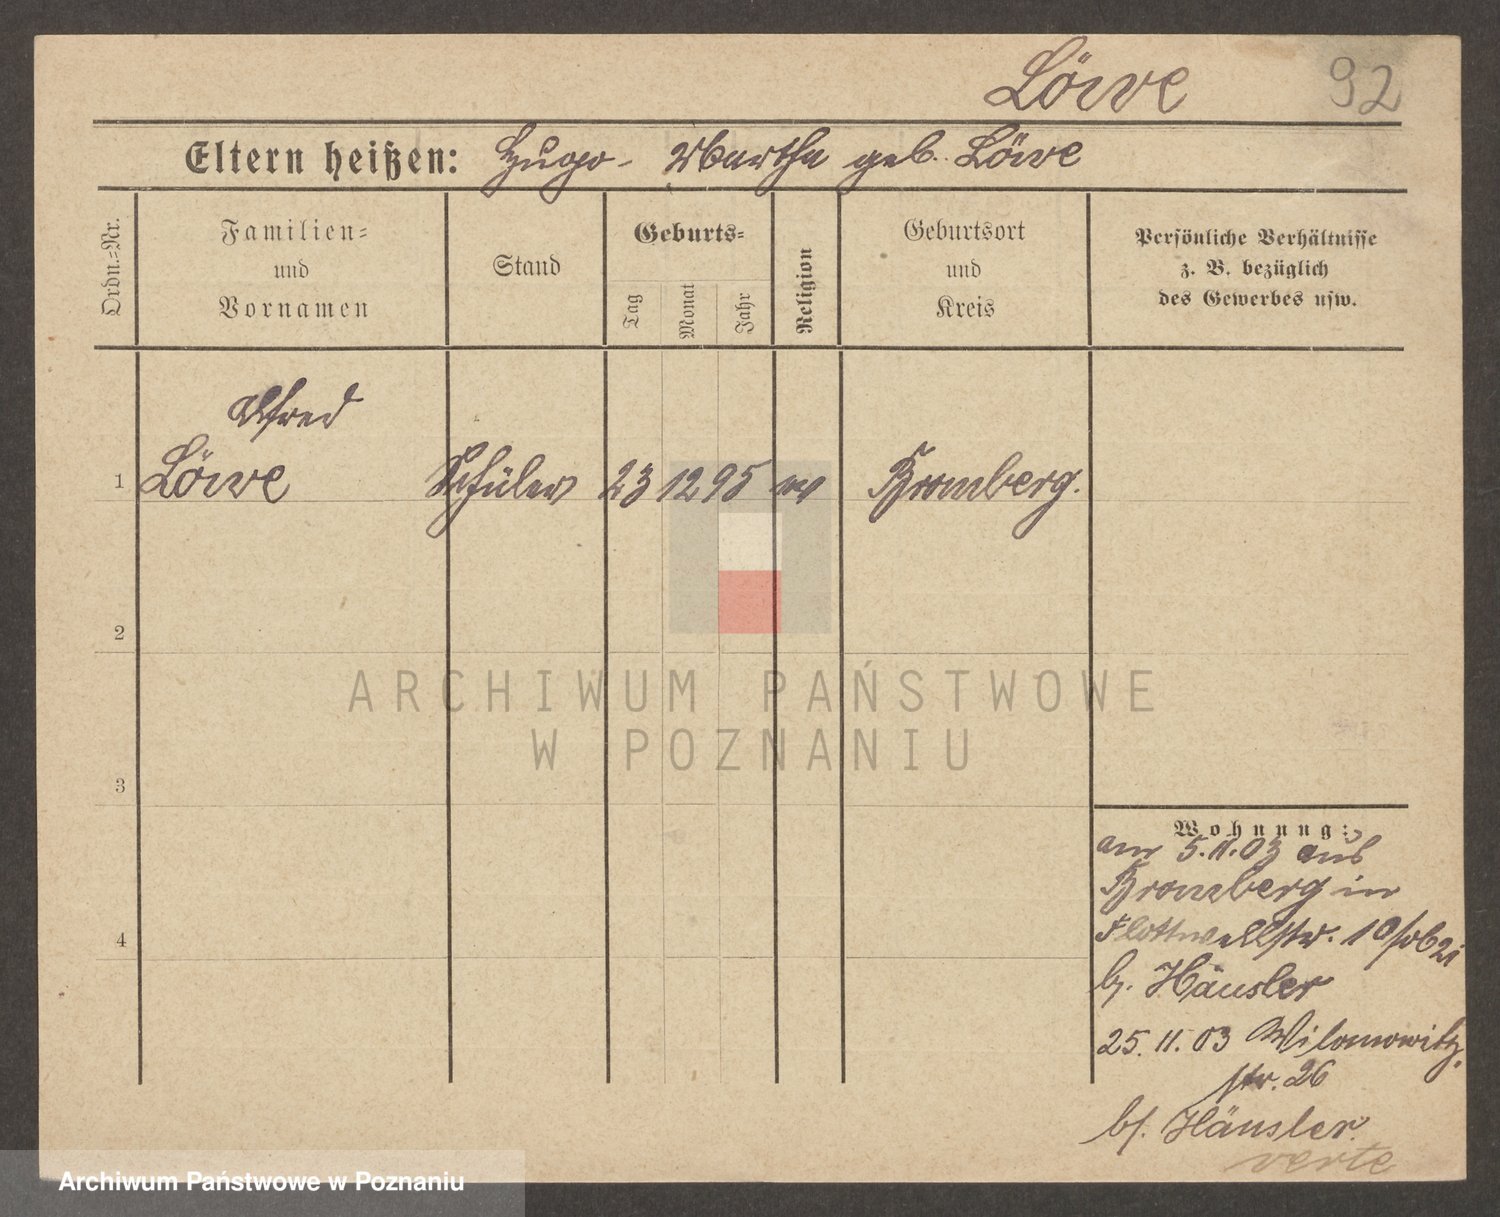 Löwe 92
Eltern heißen: Hugo - Martha geb. Löwe
Ordn.=Nr.
Familien=
und
Vornamen
Stand
Geburts=
Tag
Monat
Jahr
Religion
Geburtsort
und
Kreis
Persönliche Verhältnisse
z. B. bezüglich
des Gewerbes usw.
Alfred
1 Löwe Schüler 23 12 95 Bromberg.
2
3
4
Wohnung:
am 5.11.03 aus
Bromberg in
Flottwellstr. 10
bz. Häusler
25.11.03 Wilamowitz
str. 26
bz. Häusler.
verte
ARCHIWUM PAŃSTWOWE
W POZNANIU
Archiwum Państwowe w Poznaniu